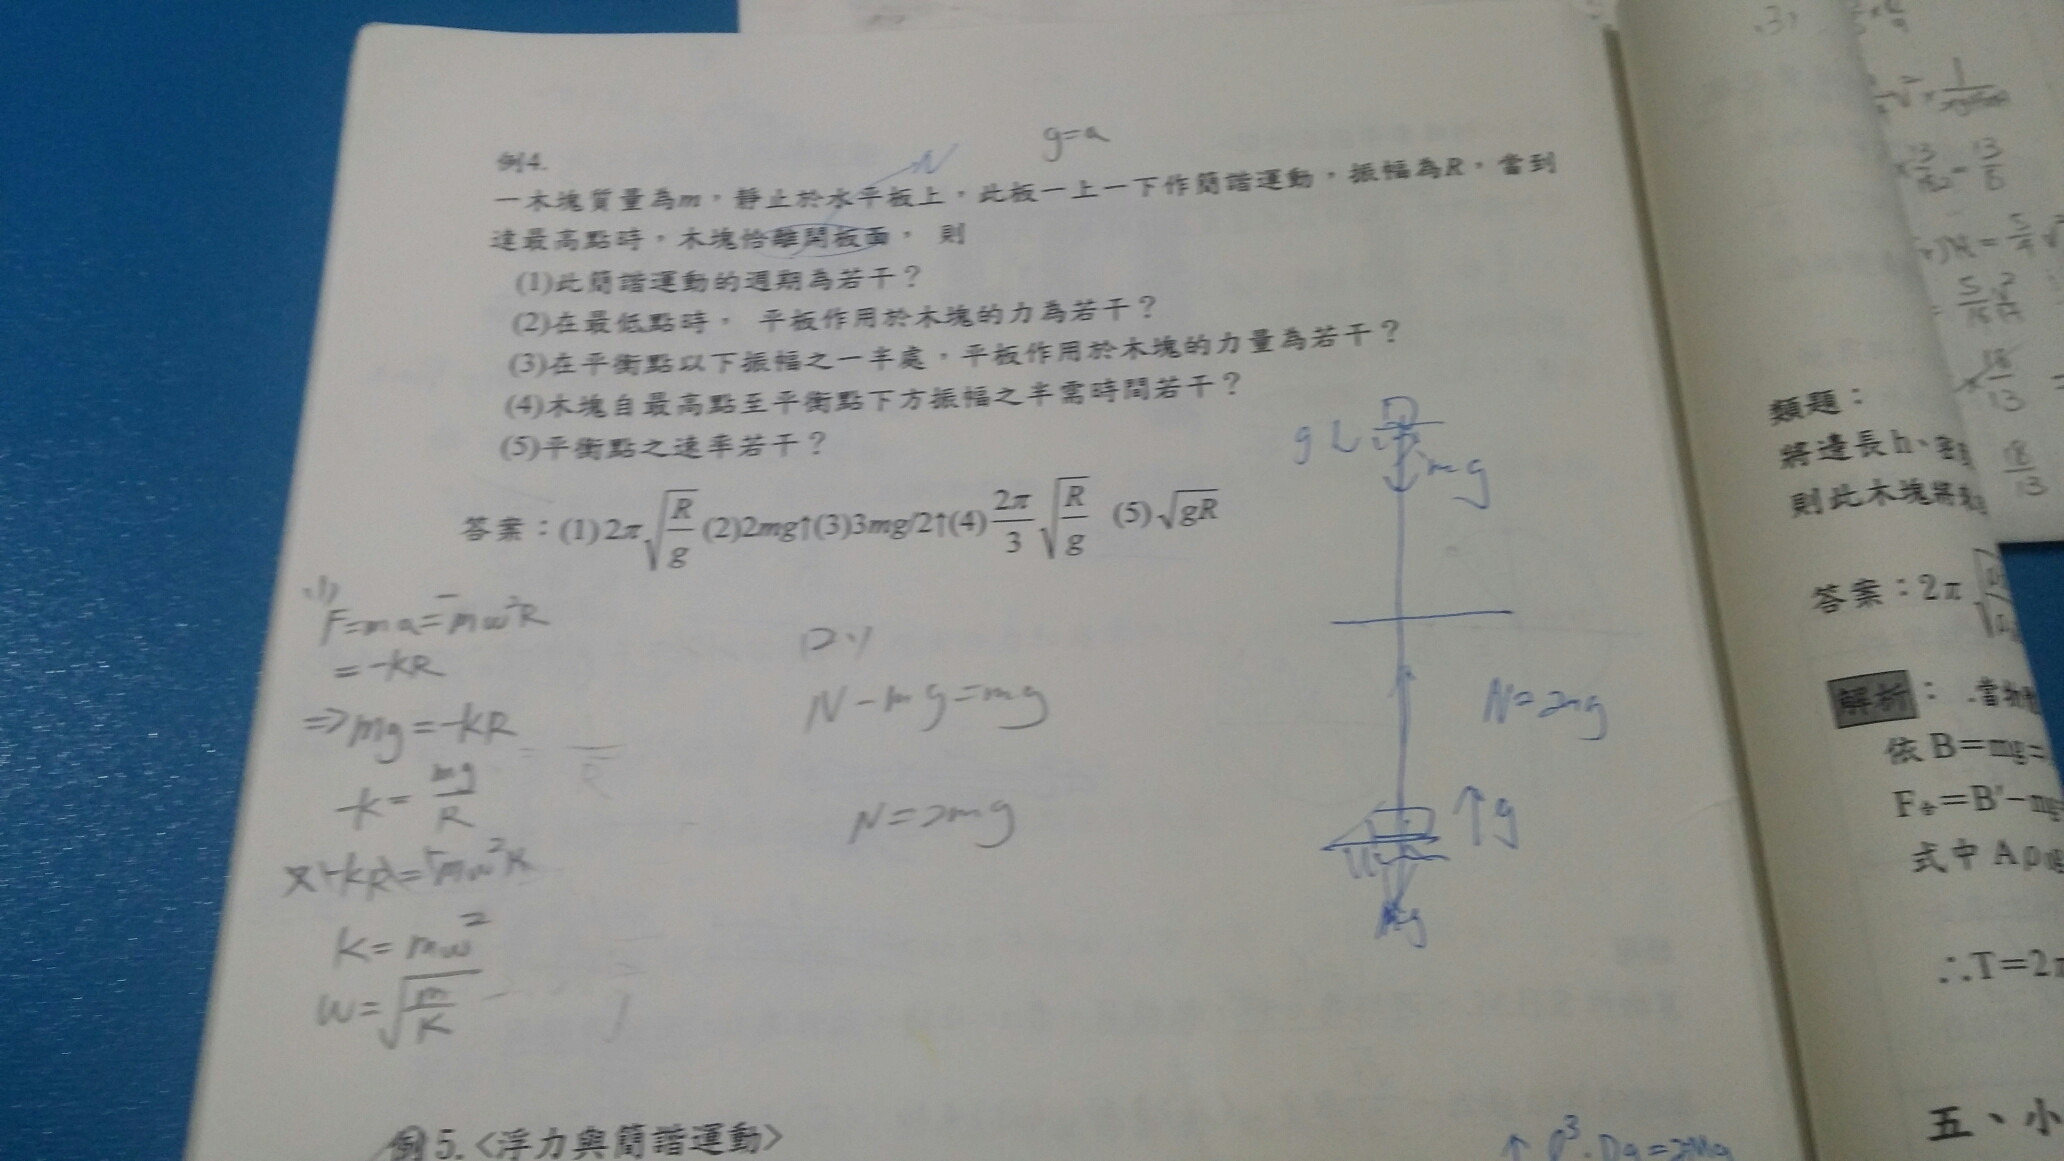 g=a
N
例4.
一木塊質量為m，靜止於水平板上，此板一上一下作簡諧運動，振幅為R，當到
達最高點時，木塊恰離開板面， 則
(1)此簡諧運動的週期為若干？
(2)在最低點時， 平板作用於木塊的力為若干？
(3)在平衡點以下振幅之一半處，平板作用於木塊的力量為若干？
(4)木塊自最高點至平衡點下方振幅之半需時間若干？
(5)平衡點之速率若干？
答案：(1) 2π√(R/g) (2)2mg↑(3)3mg/2↑(4) 2π/3 √(R/g) (5) √gR
(1)
F=ma=-mω²R
=-kR
⇒mg=-kR
-k=mg/R
又|-kR|=|-mω²R|
K=mω²
ω=√(m/K)
(2)
N-mg=mg
N=2mg
g↓
mg
N=2mg
↑g
mg
例5.<浮力與簡諧運動>
類題：
將邊長h、密
則此木塊將
答案：2π
解析：.當物
依B=mg=
F合=B'-mg
式中Aρ
∴T=2π
五、小
13
18/13